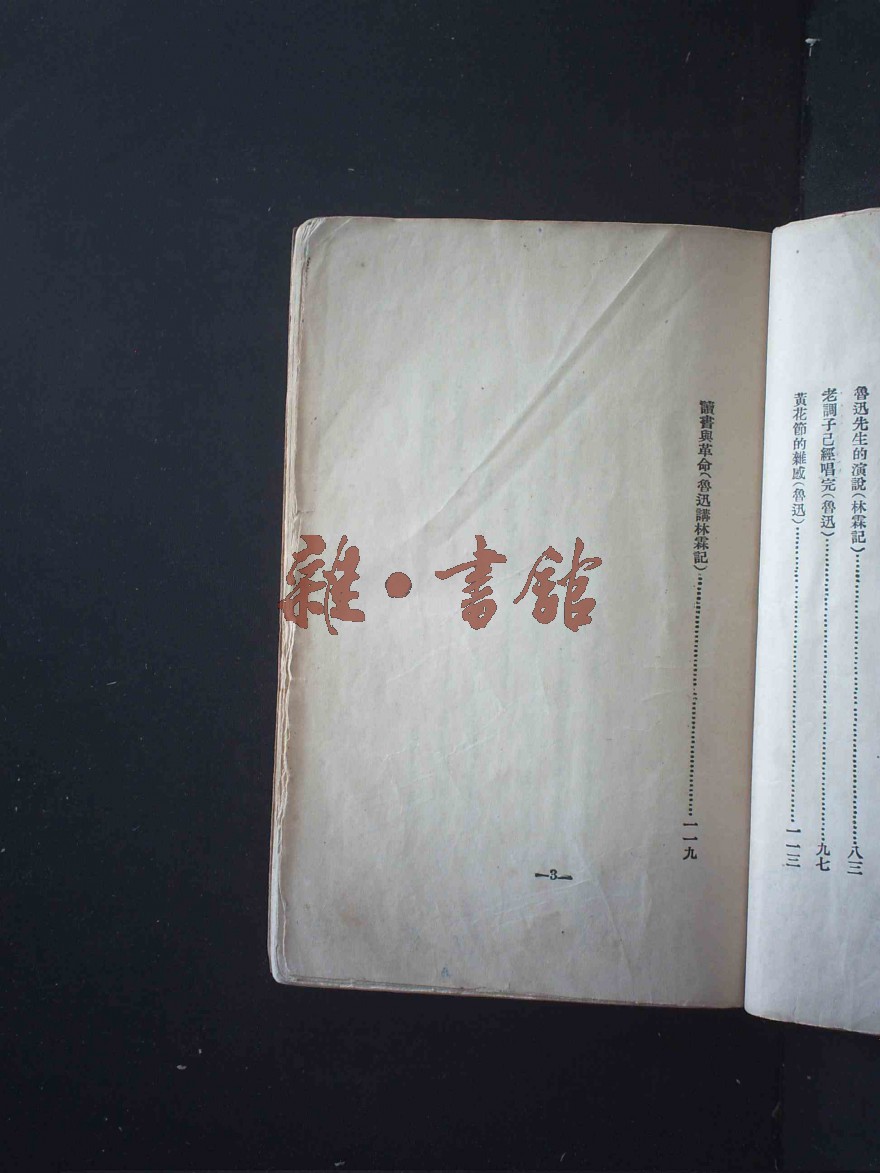 魯迅先生的演說(林霖記)…………八三
老調子已經唱完(魯迅)…………九七
黃花節的雜感(魯迅)…………一一三
讀書與革命(魯迅講林霖記)…………一一九
—3—
雜·書館